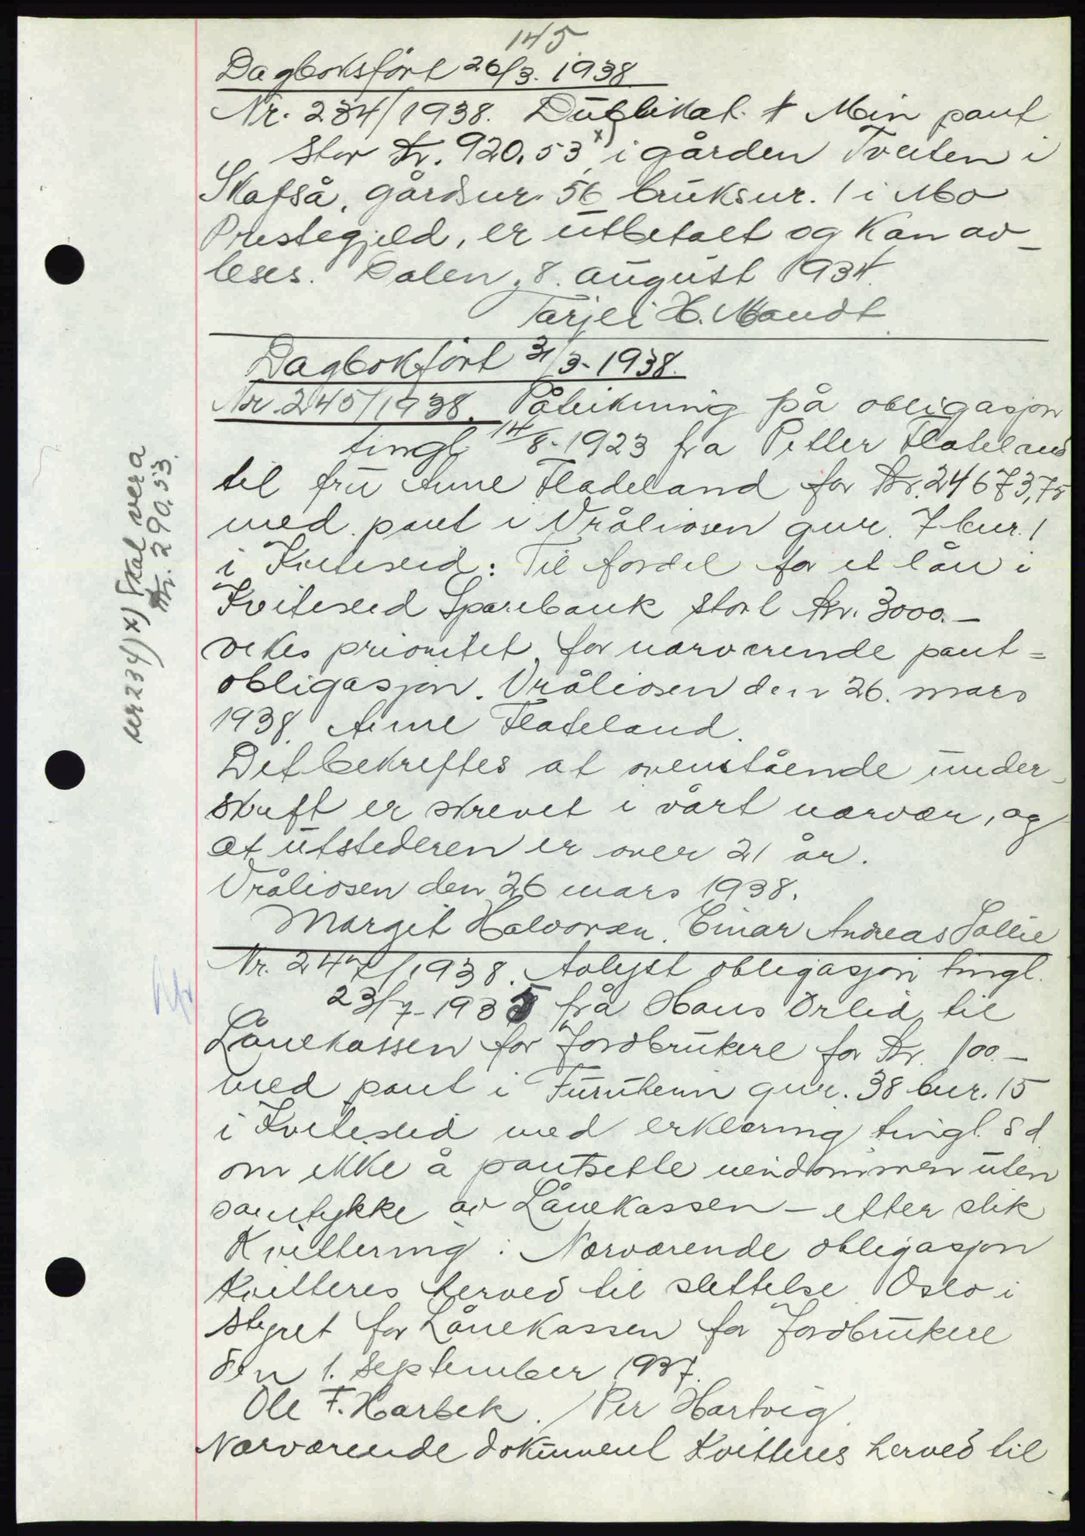 145.
Dagboksført 26/3. 1938.
Nr. 234/1938. Duplikat. + Min pant
stor kr. 920,53 x) i gården Tveiten i
Skafså, gårdsnr. 56 bruksnr. 1 i Mo
Prestegjeld, er utbetalt og kan av-
leses. Dalen, 8. august 1934.
Tarjei H. Mandt.
Dagbokført 31/3-1938.
Nr. 245/1938. Påteikning på obligasjon
tingl. 14/8-1923 fra Petter Fladeland
til fru Anne Fladeland for kr. 24673,75
med pant i Vråliosen gnr. 7 bnr. 1
i Kviteseid: Til fordel for et lån i
Kviteseid Sparebank stort kr. 3000.-
vikes prioritet for nærværende pant=
obligasjon. Vråliosen den 26. mars
1938. Anne Fladeland.
Det bekreftes at ovenstående under-
skrift er skrevet i vårt nærvær, og
at utstederen er over 21 år.
Vråliosen den 26 mars 1938.
Margit Halvorsen. Einar Andreas Sollie
Nr. 247/1938. Avlyst obligasjon tingl.
23/7-1935 frå Hans Ørlid til
Lånekassen for Jordbrukere for kr. 100.-
med pant i Furuheim gnr. 38 bnr. 15
i Kviteseid med erklæring tingl. s d.
om ikke å pantsette eiendommen uten
samtykke av Lånekassen - etter slik
Kvittering: Nærværende obligasjon
kvitteres herved til slettelse. Oslo i
styret for Lånekassen for Jordbrukere
den 1. september 1937.
Ole F. Harbek. / Per Hartvig.
Nærværende dokument kvitteres herved til
nr 234) x) Skal vera
kr. 290.53.